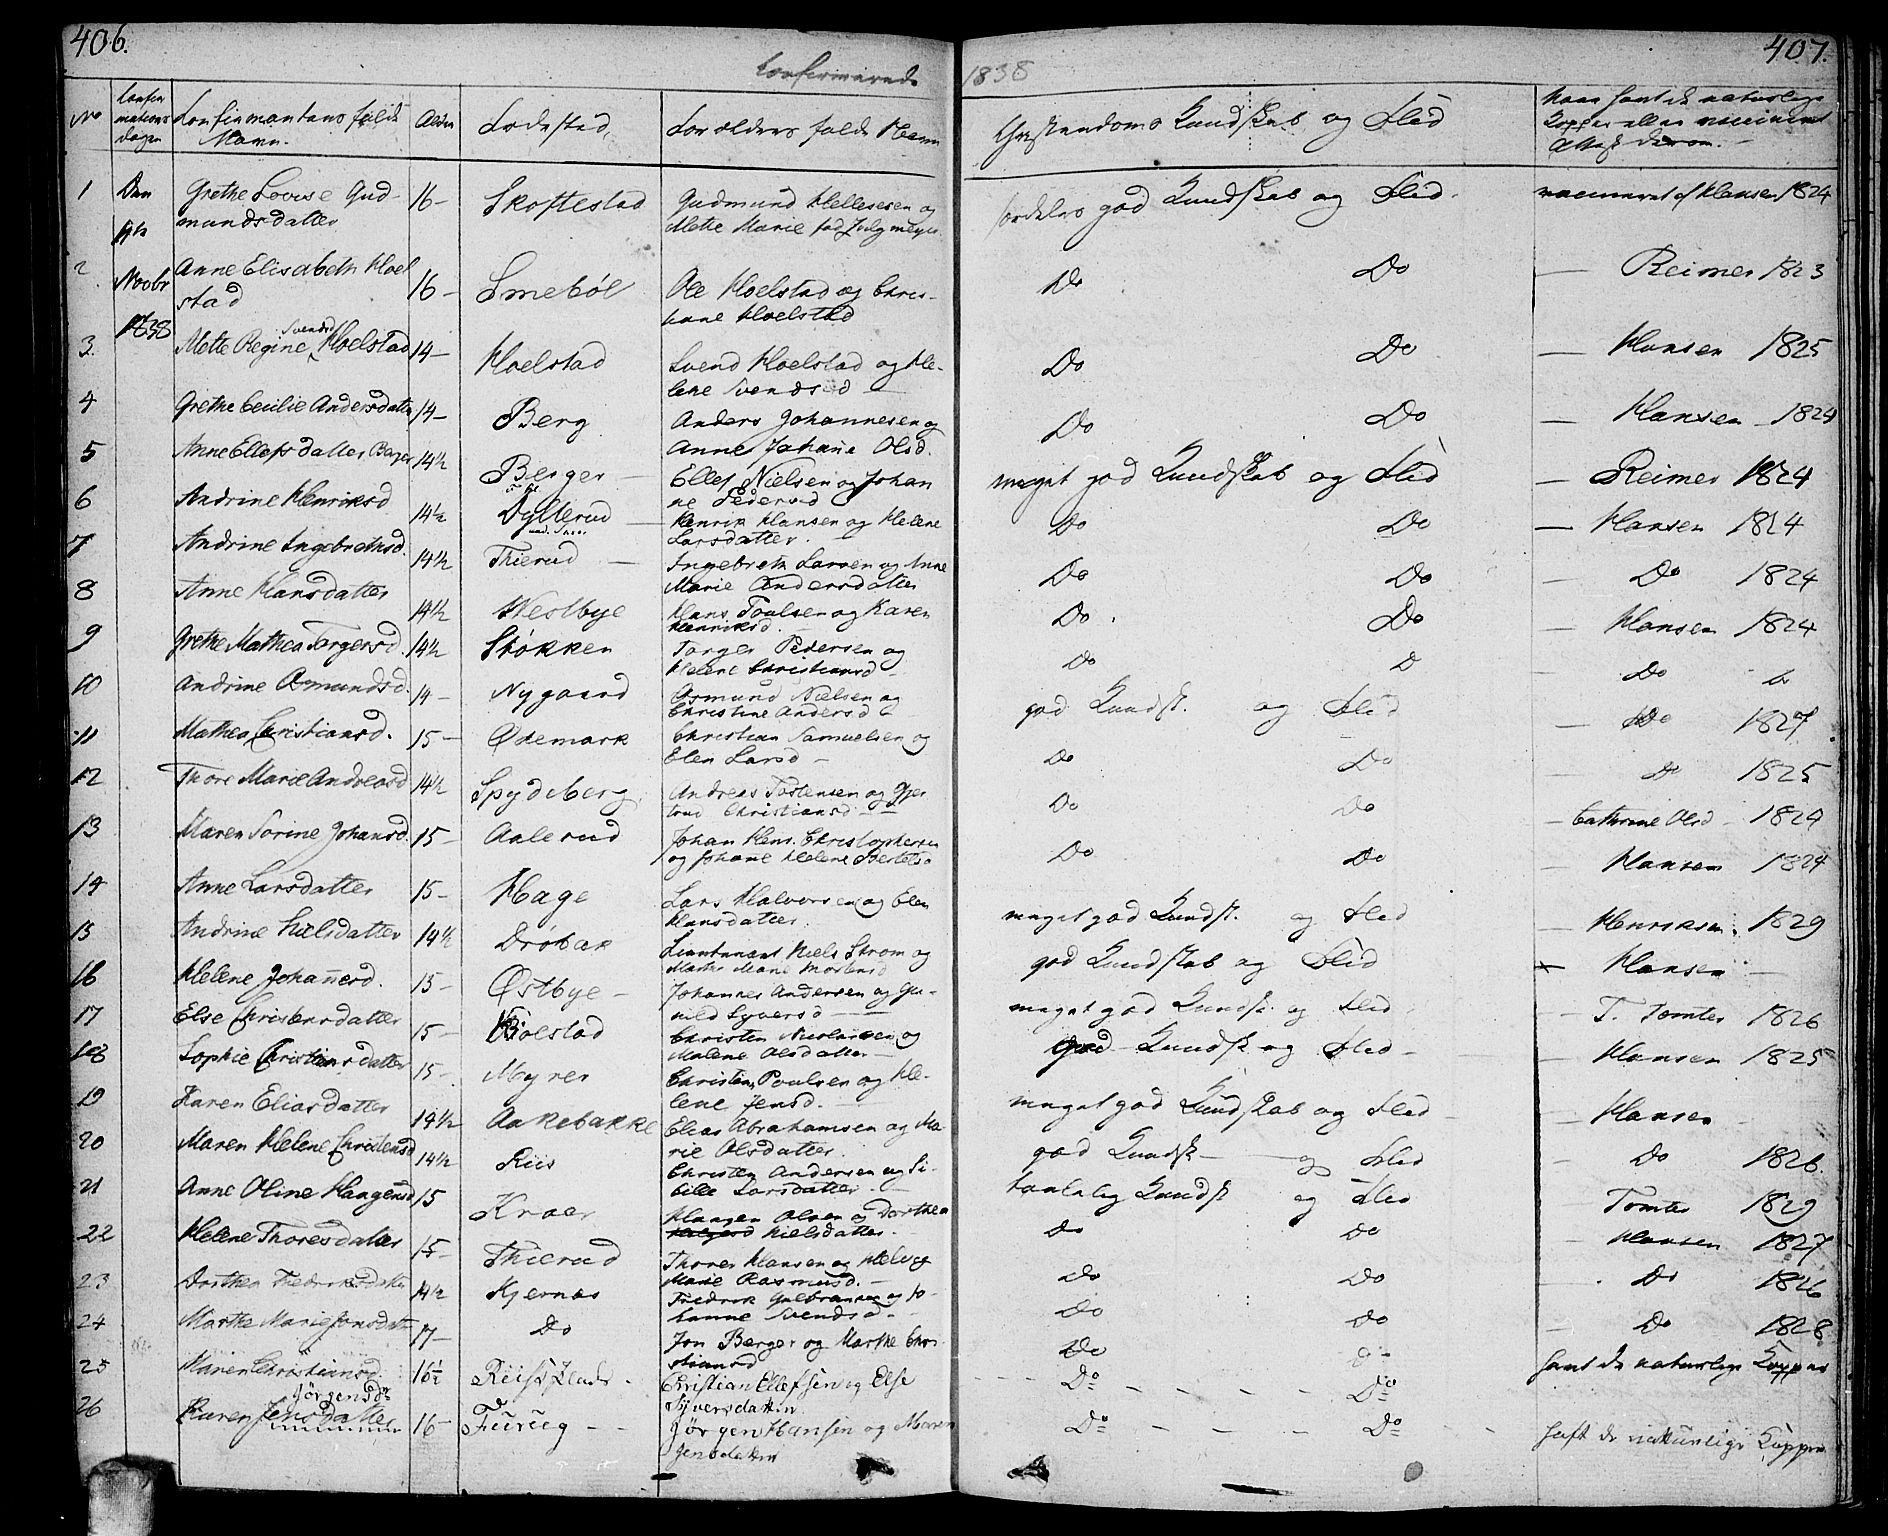 406.
407.
Confirmerede
1838
No
Confirmations dagen
Confirmantens fulde Navn.
Alder
Fødested
Forældres fulde Navn
Christendoms Kundskab og Flid
Naar havt de naturlige Kopper eller vaccineret Attest derom.
1 Den Grethe Lovise Gudmundsdatter 16- Skoftestad Gudmund Hellesesen og Mette Marie god Kundskab og Flid. vaccineret af Hansen 1824
2 Novbr 1838 Anne Elisabeth Hoelstad 16- Smebøl Ole Hoelstad og Christiane Hoelstad Do Do — Reimer 1823
3. Mette Regine Svendsd Hoelstad 14- Hoelstad Svend Hoelstad og Helene Svendsd — Do Do — Hansen 1825
4 Grethe Cecilie Andersdatter 14- Berg Anders Johannesen og Anne Johane Olsd. Do Do — Hansen 1824
5 Anne Ellefsdatter Berger 14½ Berger — Ellef Nielsen og Johanne Pedersd meget god Kundskab og Flid — Reimer 1824
6 Andrine Henriksd 14½ Dyllerud — Henrik Hansen og Helene Larsdatter. Do Do — Hansen 1824
7 Andrine Ingebrethsd. 14½ Thierud — Ingebreth Larsen og Anne Marie Andersdatter Do Do — Do 1824
8 Anne Hansdatter 14½ Westbye Hans Poulsen og Karen Henriksd. Do Do — Hansen 1824
9 Grethe Mathea Torgersd. 14½ Støkken Torger Pedersen og Helene Christiansd Do D — Do
10 Andrine Asmundsd. 14- Nygaard Asmund Nielsen og Christine Andersd — god Kundsk. og Flid — Do 1827
11 Mathea Christiansd. 15- Ødemark Christian Samuelsen og Elen Larsd — Do Do — Do 1825
12 Thore Marie Andreasd 14½ Spydeberg Andreas Tostensen og Gjertrud Christiansd — Do Do — Cathrine Olsd — 1824
13 Maren Sorine Johansd. 15- Aalerud Johan Hens. Christophersen og Johane Helene Bertelsd Do Do — Hansen 1824
14 Anne Larsdatter 15- Hage Lars Halvorsen og Elen Hansdatter. meget god Kundsk. og Flid — Henriksen. 1829
15 Andrine Nielsdatter 14½ Drøbak Lieutenant Niels Strøm og Marthe Marie Mortensd god Kundskab og Flid Hansen —
16 Helene Johannesd. 15- Østbye — Johannes Andersen og Gunild Syversd — meget god Kundsk. og Flid. — T. Tomter 1826
17 Else Christensdatter 15- Kolstad Christen Nicolaisen og Malene Olsdatter — god Kundsk og Flid — — Hansen 1825
18 Sophie Christiansdatter 15- Myrer Christian Poulsen og Helene Jensd. — meget god Kundskab og Flid — — Hansen
19 Karen Eliasdatter 14½ Aakebakke Elias Abrahamsen og Marie Olsdatter. god Kundsk — og Flid — Do 1826.
20 Maren Helene Christensd 14½ Riis Christen Andersen og Sibille Larsdatter. — taalelig Kundsk og Flid Tomter 1829
21 Anne Oline Haagensd 15 Kraer Haagen Olsen og Dorthea Nielsdatter. Do Do — Hansen 1827
22 Helene Thoresdatter 15- Thierud Thores Hansen og Helvig Marie Rasmusd. — Do Do — Do 1826
23 Dorthea Fredriksdatter 14½ Kjernæs Fredrik Gulbransen og Johanne Svendsd — Do Do — Do 1828
24 Marthe Marie Jonsdatter 17- Do Jon Berger og Marthe Christiansd Do havt de naturlige Kopper
25 Maren Christiansd. 16½ Christian Ellefsen og Else Syversdatter Do — — — — Do
26 Karen Jensdatter Jørgensdr 16- Furueg - - Jørgen Hansen og Maren Jensdatter Do — — — Do — havt de naturlige Kopper